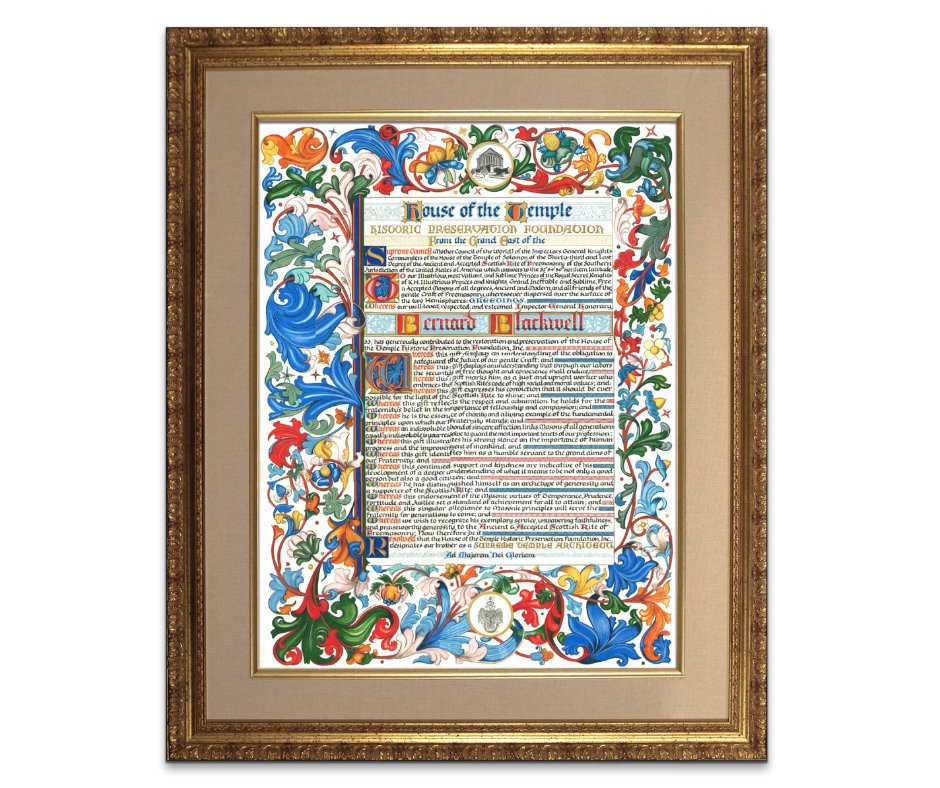 House of the Temple
HISTORIC PRESERVATION FOUNDATION
From the Grand East of the
Supreme Council (Mother Council of the World) of the Inspectors General Knights
Commanders of the House of the Temple of Solomon of the Thirty-third and Last
Degree of the Ancient and Accepted Scottish Rite of Freemasonry of the Southern
Jurisdiction of the United States of America which answers to the northern latitude,
To our Illustrious, most Valiant, and Sublime Princes of the Royal Secret, Knights
of K.H, Illustrious Princes and Knights, Grand, Ineffable and Sublime, Free
& Accepted Masons of all degrees, Ancient and Modern, and all friends of the
gentle Craft of Freemasonry, wheresoever dispersed over the surface of
the two Hemispheres: GREETINGS.
Whereas our well-loved, respected, and esteemed Inspector General Honorary,
Bernard Blackwell
33, has generously contributed to the restoration and preservation of the House of
the Temple Historic Preservation Foundation, Inc.
Whereas this gift displays an understanding of the obligation to
safeguard the future of our gentle Craft; and
Whereas this gift displays an understanding that through our labors
the security of free thought and conscience shall endure
Whereas this gift marks him as a just and upright worker who
embraces the Scottish Rite's code of high social and moral values; and
Whereas this gift expresses his conviction that it should be ever
possible for the light of the Scottish Rite to shine; and
Whereas this gift reflects the respect and admiration he holds for the
fraternity's belief in the importance of fellowship and compassion; and
Whereas he is the essence of charity and a living example of the fundamental
principles upon which our Fraternity stands; and
Whereas an indissoluble bond of sincere affection links Masons of all generations
equally indissoluble is your resolve to guard the most important tenets of our profession;
Whereas this gift illustrates his strong stance on the importance of human
progress and the improvement of mankind; and
Whereas this gift identifies him as a humble servant to the grand aims of
our Fraternity; and
Whereas this continued support and kindness are indicative of his
development of a deeper understanding of what it means to be not only a good
person but also a good citizen; and
Whereas he has distinguished himself as an archetype of generosity and
a supporter of the Scottish Rite; and
Whereas this endorsement of the Masonic virtues of Temperance, Prudence,
Fortitude and Justice set a standard of achievement for all to attain; and
Whereas this singular allegiance to Masonic principles will serve the
Fraternity for generations to come; and
Whereas we wish to recognize his exemplary service, unwavering faithfulness,
and praiseworthy generosity to the Ancient & Accepted Scottish Rite of
Freemasonry; Now therefore be it
Resolved that the House of the Temple Historic Preservation Foundation, Inc.
designates our brother as a SUPREME TEMPLE ARCHITECT
Ad Majorem Dei Gloriam